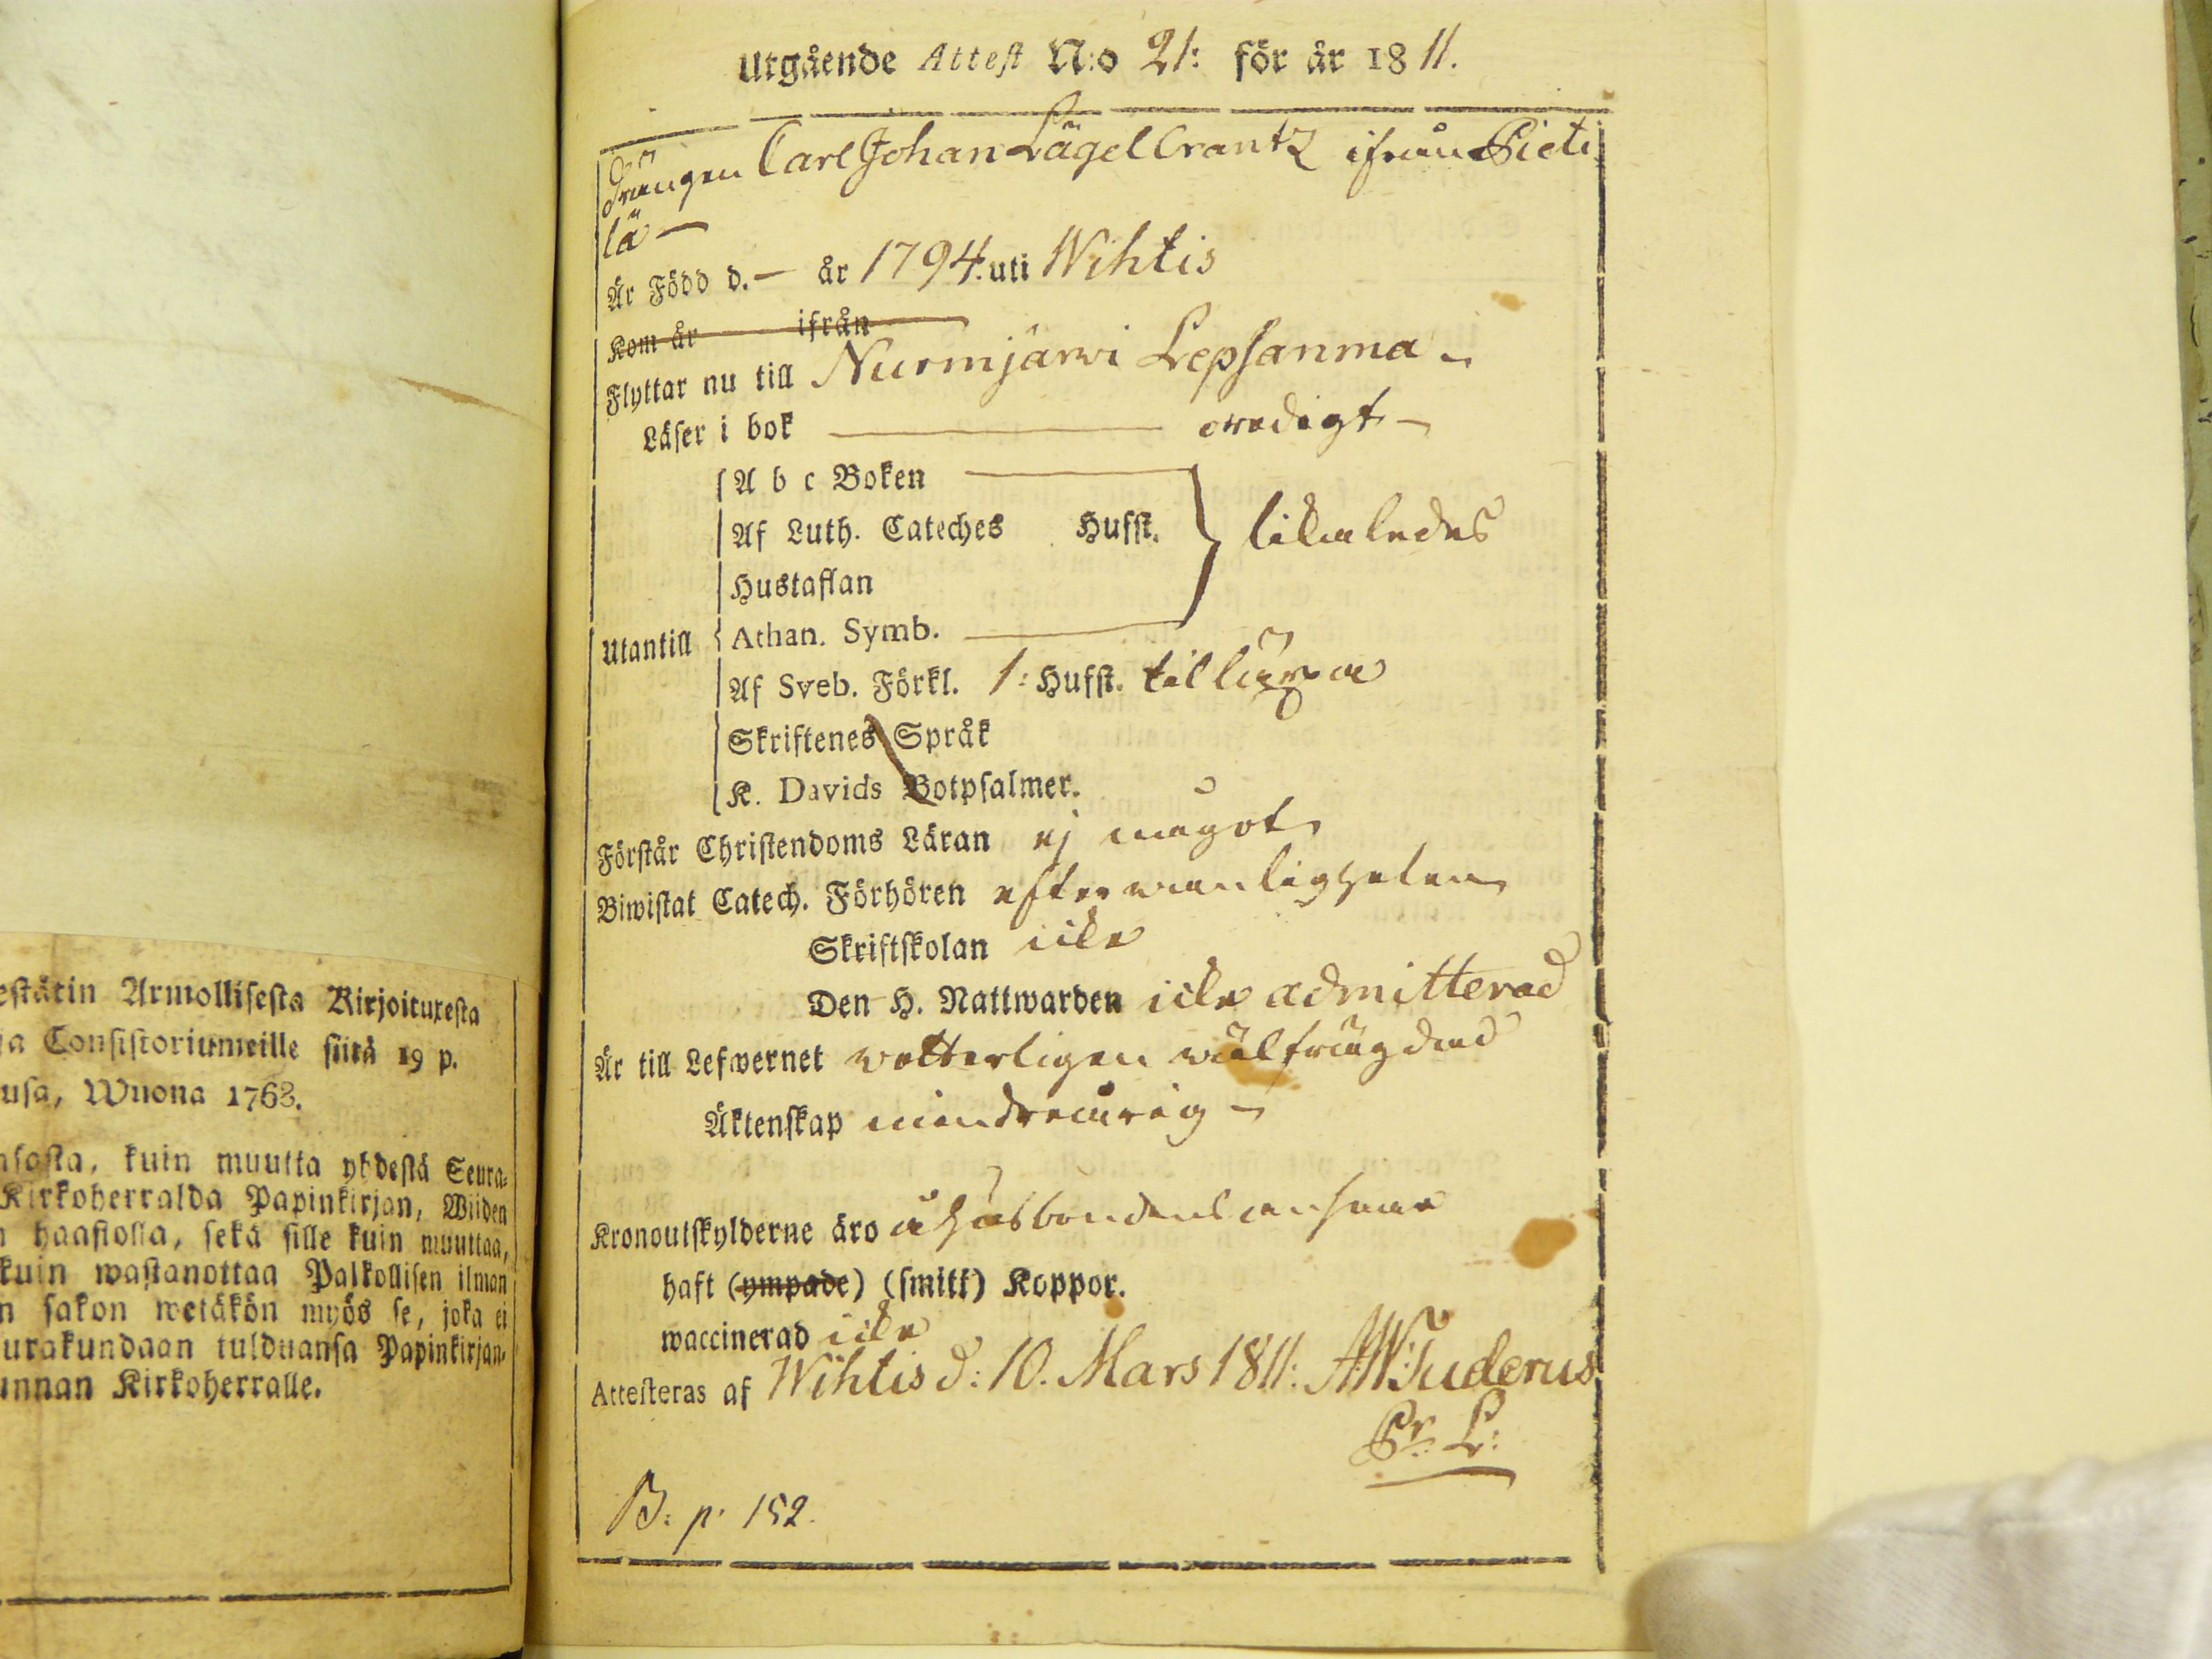 estätin Armollisesta Kirjoituxesta
a Consistoriumeille siitä 19 p.
usa, Wuona 1763.
sasta, kuin muutta yhdestä Seura-
Kirkoherralda Papinkirjan, Wiiden
haastolla, sekä sille kuin muuttaa,
kuin wastanottaa Palkollisen ilman
n sakon wetäkön myös se, joka ei
urakundaan tulduansa Papinkirjan-
unnan Kirkoherralle.
Utgående Attest N:o 21: för år 1811.
Drängen Carl Johan Lägel Crantz ifrån Pieti
lä —
Är Född d. — år 1794. uti Wihtis
Kom år ifrån
Flyttar nu till Nurmjärwi Lepsanma —
Läser i bok — oredigt —
A b c Boken
Af Luth. Cateches Hufst. likaledes
Hustaflan
Utantill Athan. Symb.
Af Sveb. Förkl. 1: Hufst. till
Skriftenes Språk
K. Davids Botpsalmer.
Förstår Christendoms Läran ej något
Biwistat Catech. Förhören efter wanligheten
Skriftskolan icke
Den H. Nattwarden icke admitterad
Är till Lefwernet wetterligen wälfrägdad
Äktenskap minderårig —
Kronoutskylderne äro å husbondens answar
haft (ympade) (smitt) Koppor.
waccinerad icke
Attesteras af Wihtis d: 10. Mars 1811: AW: Tuderus
Pr. L:
B: p. 152.